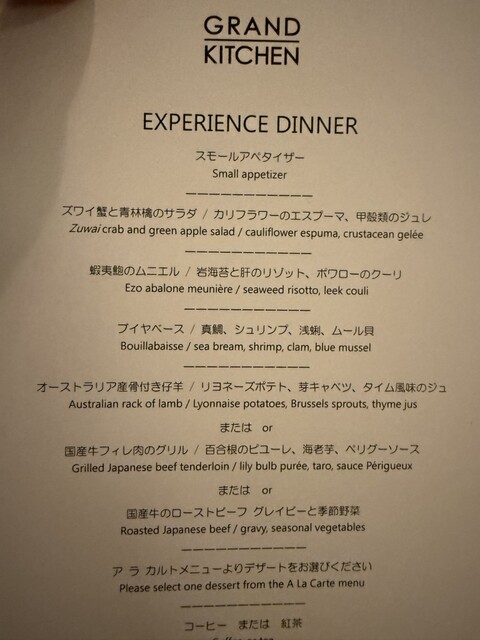 GRAND
KITCHEN
EXPERIENCE DINNER
スモールアペタイザー
Small appetizer
ズワイ蟹と青林檎のサラダ / カリフラワーのエスプーマ、甲殻類のジュレ
Zuwai crab and green apple salad / cauliflower espuma, crustacean gelée
蝦夷鮑のムニエル / 岩海苔と肝のリゾット、ポワローのクーリ
Ezo abalone meunière / seaweed risotto, leek couli
ブイヤベース / 真鯛、シュリンプ、浅蜊、ムール貝
Bouillabaisse / sea bream, shrimp, clam, blue mussel
オーストラリア産骨付き仔羊 / リヨネーズポテト、芽キャベツ、タイム風味のジュ
Australian rack of lamb / Lyonnaise potatoes, Brussels sprouts, thyme jus
または or
国産牛フィレ肉のグリル / 百合根のピューレ、海老芋、ペリグーソース
Grilled Japanese beef tenderloin / lily bulb purée, taro, sauce Périgueux
または or
国産牛のローストビーフ グレイビーと季節野菜
Roasted Japanese beef / gravy, seasonal vegetables
ア ラ カルトメニューよりデザートをお選びください
Please select one dessert from the A La Carte menu
コーヒー または 紅茶